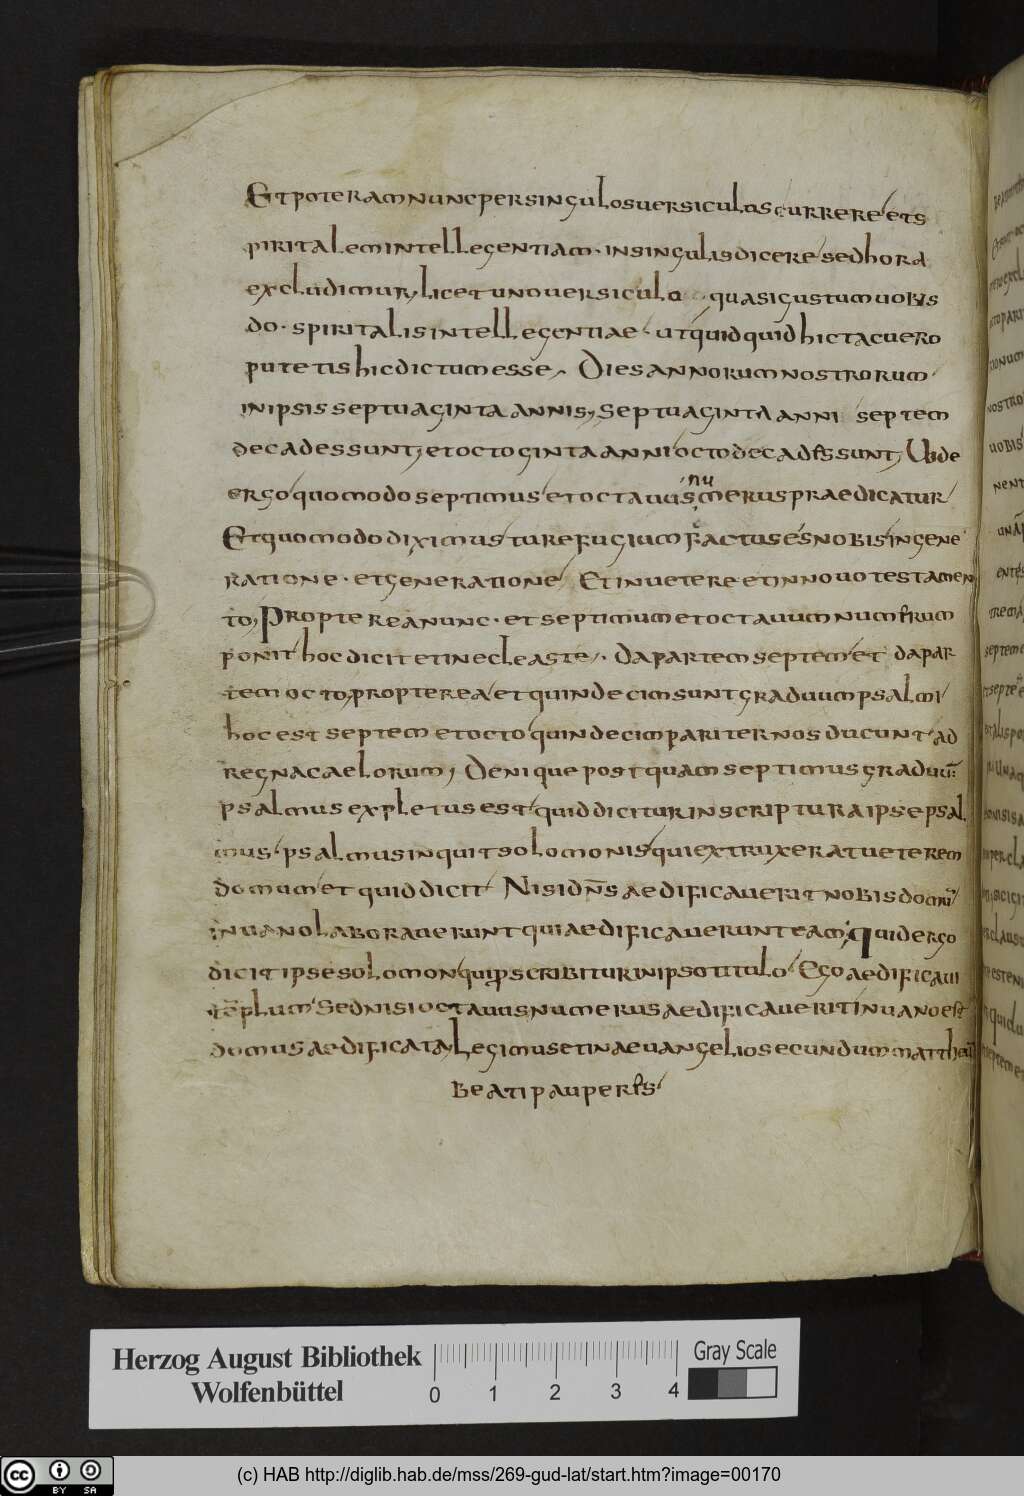 Et poteram nunc per singulos versiculos currere et s
piritalem intellegentiam · in singulis dicere sed hora
excludimur, licet uno versiculo quasi gustum vobis
do · spiritalis intellegentiae · ut quidquid hic tacuero
putetis hic dictum esse, Dies annorum nostrorum
in ipsis septuaginta annis, Septuaginta anni septem
decades sunt, et octoginta anni octo decades sunt, Vide
nu
ergo quomodo septimus et octavus merus praedicatur
Et quomodo diximus tu refugium factus es nobis in gene
ratione · et generatione Et in vetere et in novo testamen
to, Propterea nunc · et septimum et octavum numerum
ponit hoc dicit et in ecleaste, · Da partem septem et da par
tem octo, propterea et quindecim sunt graduum psalmi
hoc est septem et octo quindecim pariter nos ducunt ad
regna caelorum, Denique postquam septimus graduū
psalmus expletus est quid dicitur in scriptura ipse psal
mus · psalmus inquit solomonis qui extruxerat veterem
domum et quid dicit Nisi dn̄s aedificaverit nobis domū
in vano laboraverunt qui aedificaverunt eam, Quid ergo
dicit ipse solomon qui p̱scribitur in ipso titulo Ego aedificavi
tēplum Sed nisi octavus numerus aedificaverit in vano est
domus aedificata, Legimus et in aevangelio secundum mattheū
Beati pauperes
Herzog August Bibliothek
Wolfenbüttel
0 1 2 3 4
Gray Scale
cc BY SA
(c) HAB http://diglib.hab.de/mss/269-gud-lat/start.htm?image=00170